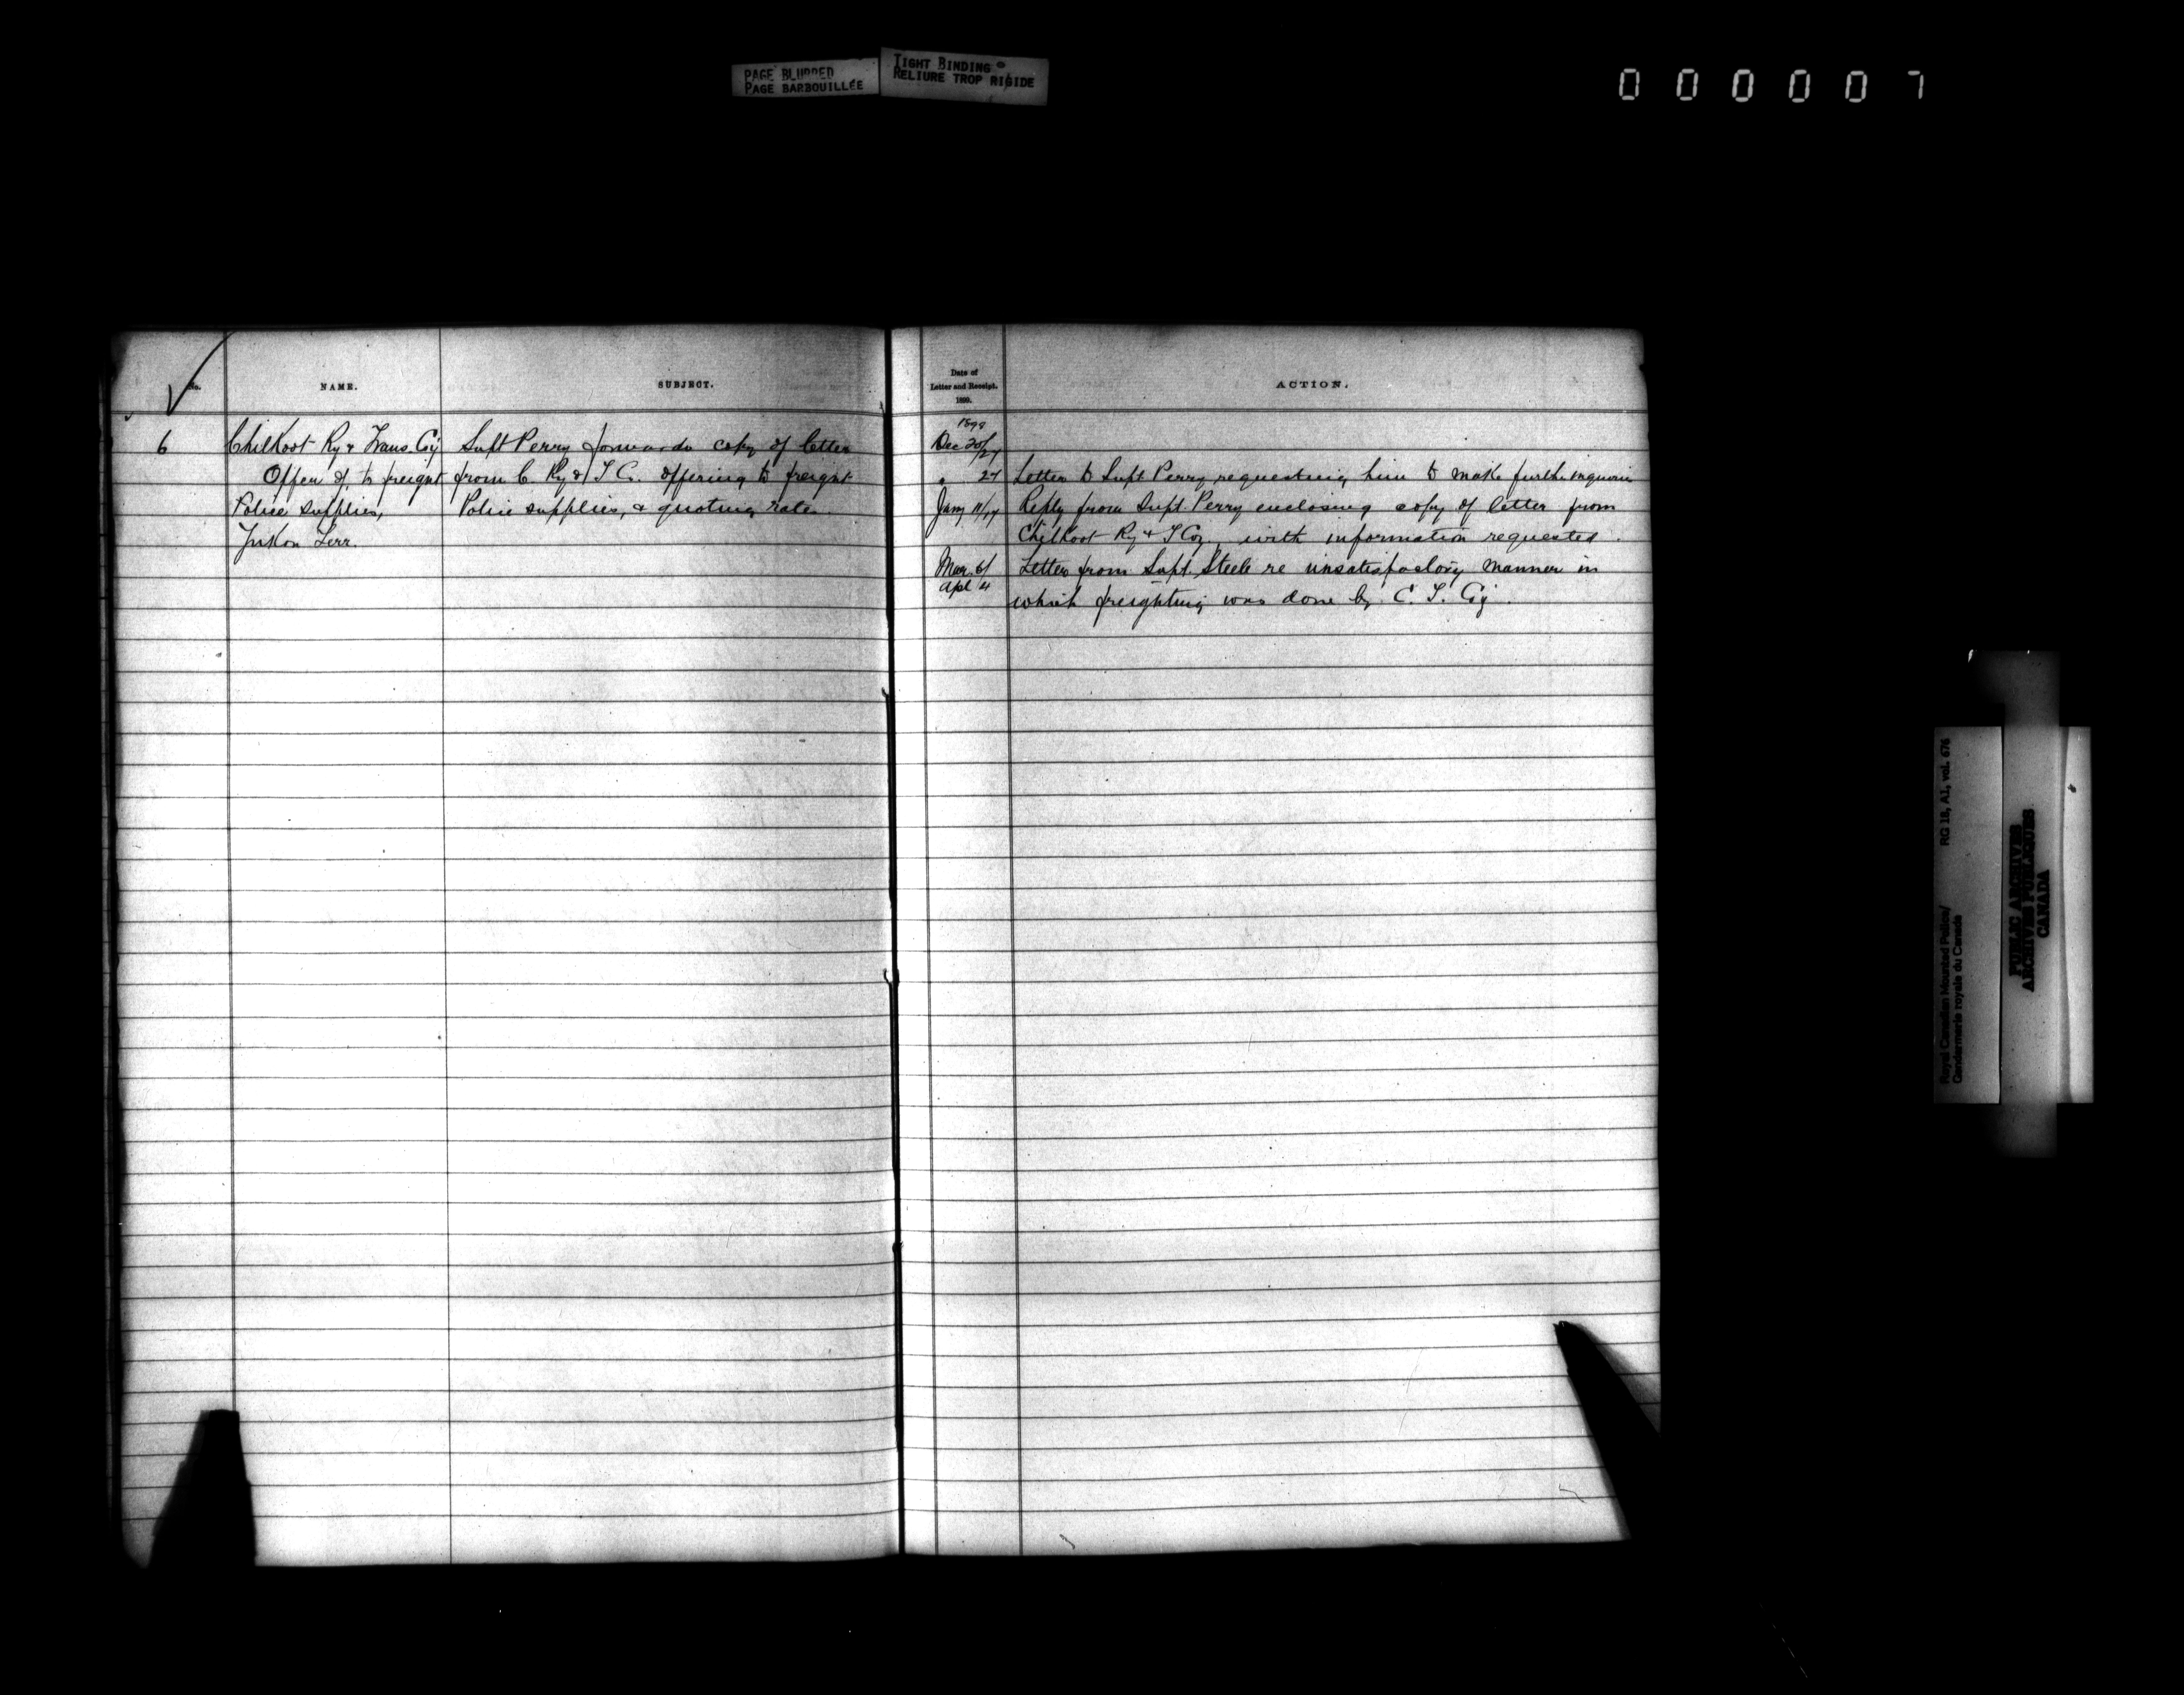 PAGE BLURRED
PAGE BARBOUILLÉE
TIGHT BINDING
RELIURE TROP RIGIDE
000007
No.
NAME.
SUBJECT.
Date of
Letter and Receipt.
1899.
ACTION.
6
Chilkoot Ry & Trans. Coy
Offer of, to freight
Police supplies,
Yukon Terr.
Supt Perry forwards copy of letter
from C. Ry & T Co. offering to freight
Police supplies, & quoting rates.
Dec 20/27
" 27 Letter to Supt Perry requesting him to make further inquiries
Jany 11/17 Reply from Supt. Perry enclosing copy of letter from
Chilkoot Ry & T Coy., with information requested.
Mar. 6/ Letter from Supt. Steele re unsatisfactory manner in
Apl 4 which freighting was done by C. T. Coy.
Royal Canadian Mounted Police/
Gendarmerie royale du Canada
RG 18, A1, vol. 676
PUBLIC ARCHIVES
ARCHIVES PUBLIQUES
CANADA